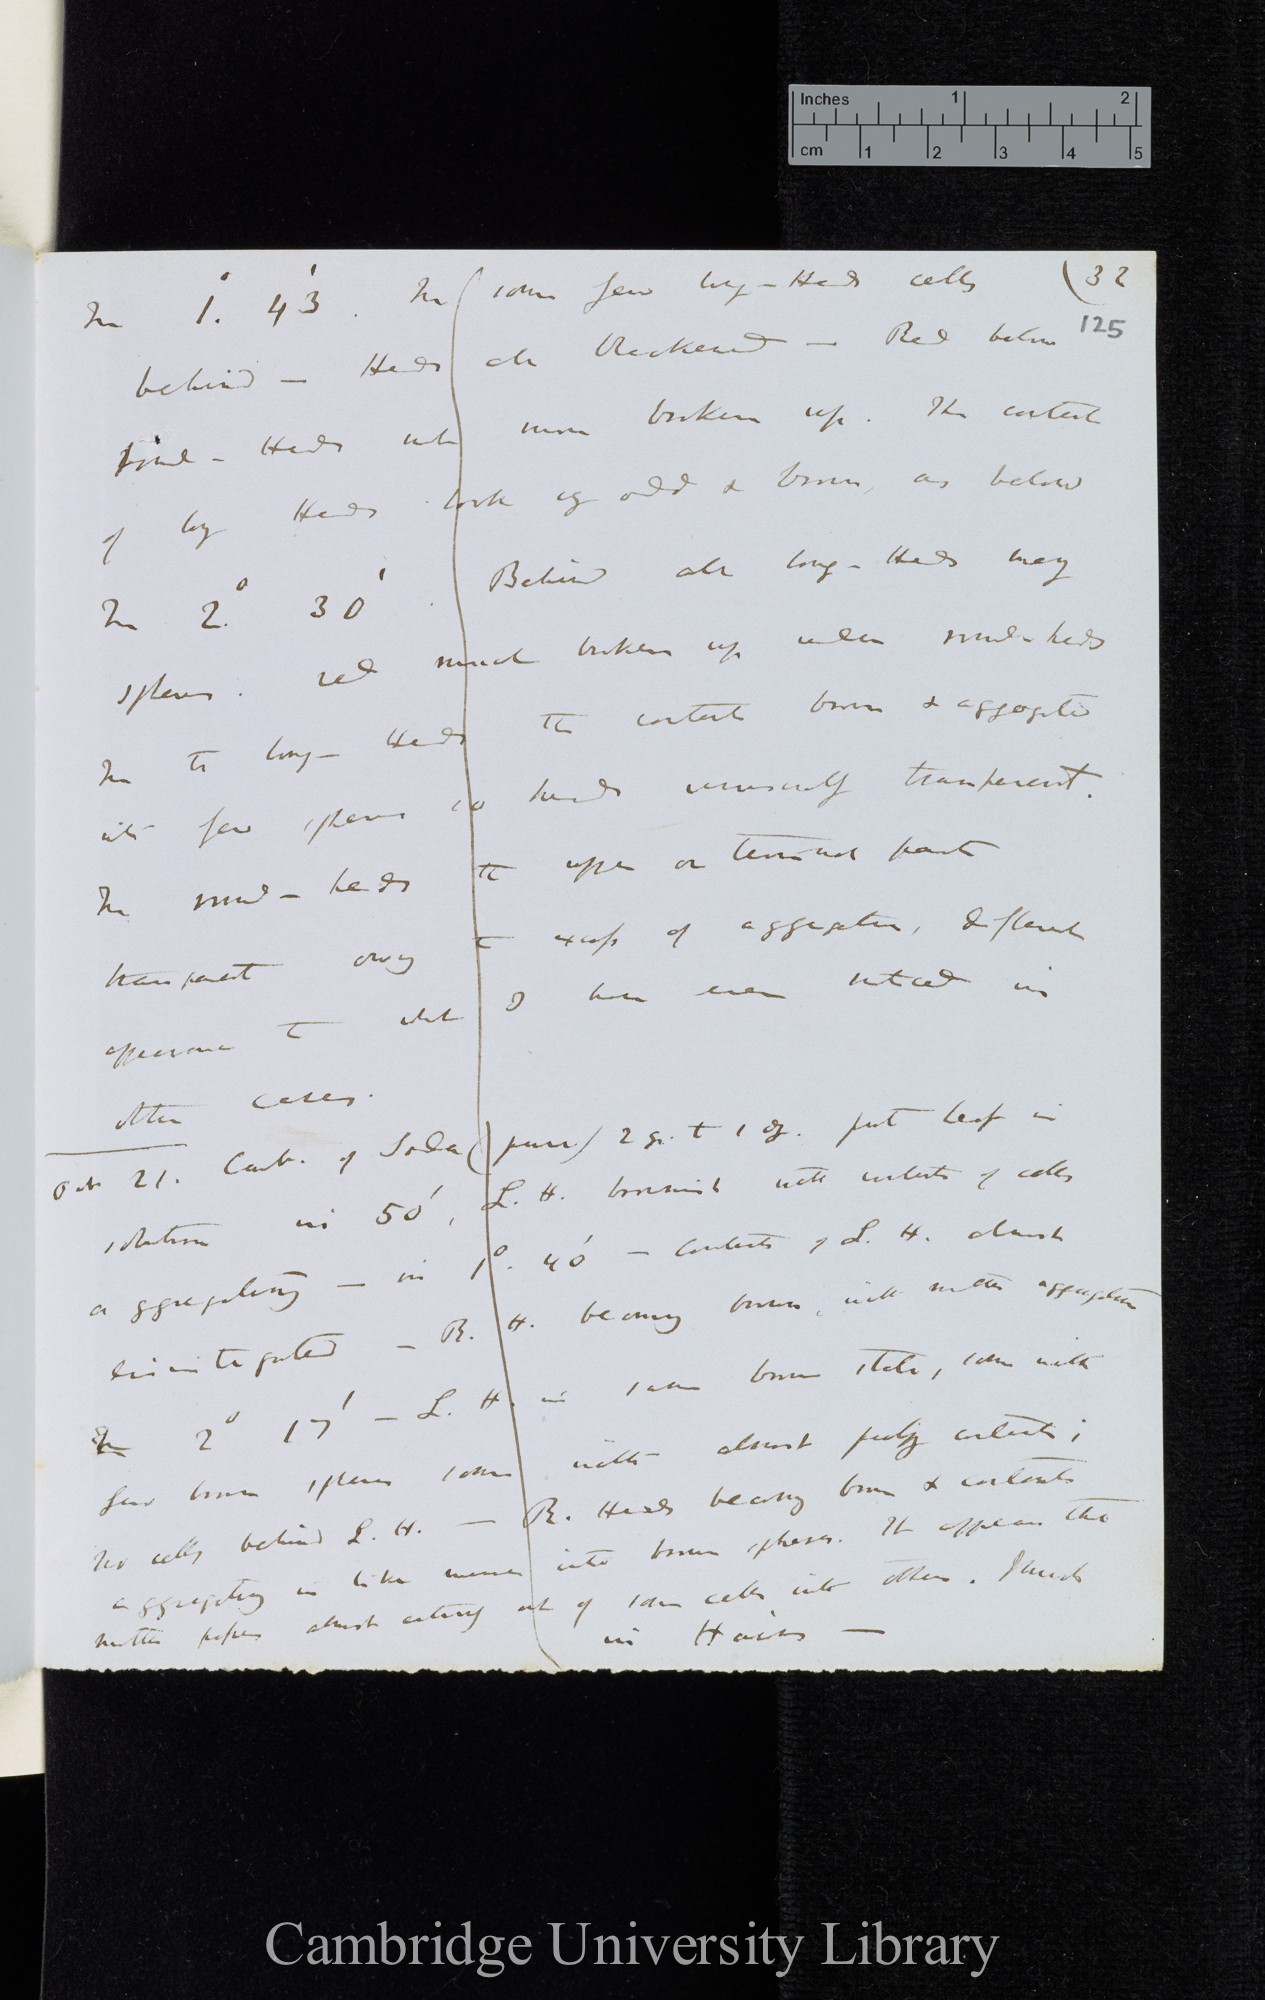 Inches 1 2
cm 1 2 3 4 5
(32
125
In 1.° 43'. In some few long-Heads cells
behind — Heads all blackened — Red below
round-Heads not more broken up. The contents
of long Heads look odd & brown, as below
In 2.° 30'. Behind all long-Heads many
spheres. red much broken up under round-heads
In the long-Heads the contents brown & aggregated
into few spheres so heads unusually transparent.
In round-heads the upper or terminal parts
transparent owing to excess of aggregation, different
appearance to what I have ever noticed in
other cases.
Oct 21. Carb. of Soda (pure) 2 gr. to 1 oz. put leaf in
solution in 50', L. H. brownish with contents of cells
aggregating — in 1°. 40' — Contents of L. H. almost
disintegrated — R. H. becoming brown, with matter aggregating
In 2° 17' — L. H. in same brown state, some with
few brown spheres some with almost pulpy contents;
No cells behind L. H. — R. Heads becoming brown & contents
aggregating in like manner into brown spheres. It appears that
matter passes almost out of some cells into others.
in Hairs —
Cambridge University Library